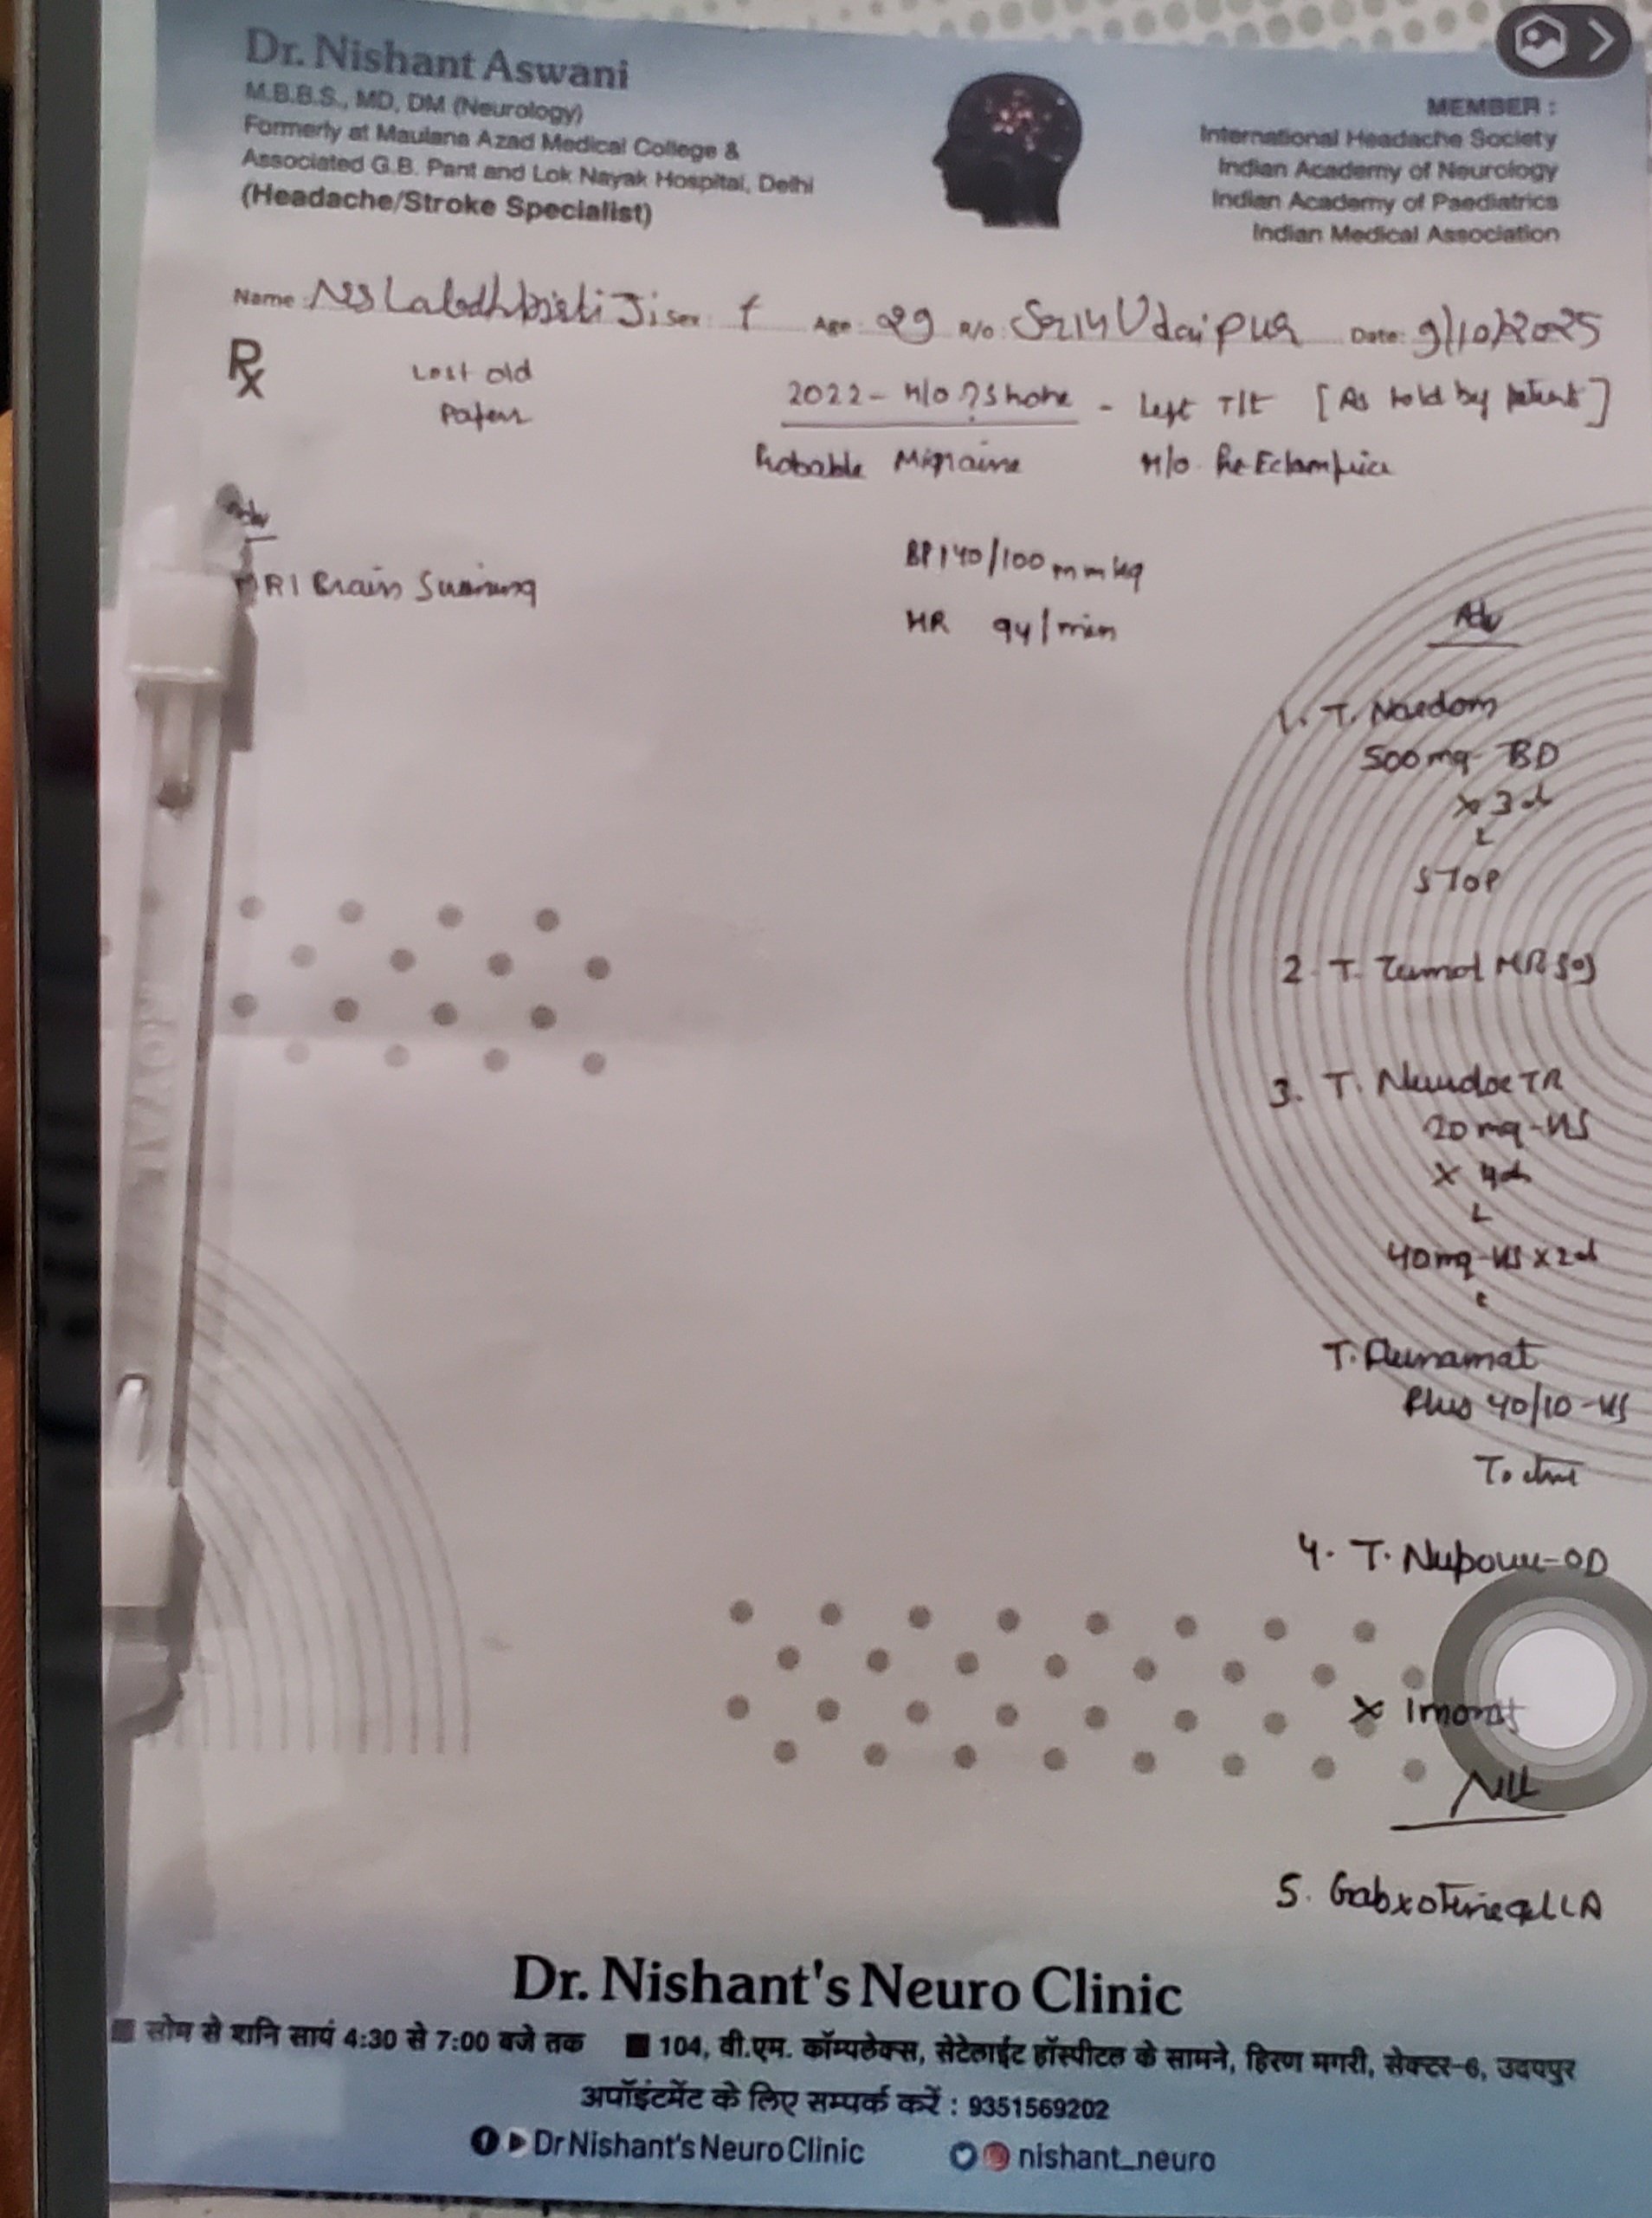 Dr. Nishant Aswani
M.B.B.S., MD, DM (Neurology)
Formerly at Maulana Azad Medical College &
Associated G.B. Pant and Lok Nayak Hospital, Delhi
(Headache/Stroke Specialist)
MEMBER :
International Headache Society
Indian Academy of Neurology
Indian Academy of Paediatrics
Indian Medical Association
Name: Sex: f Age: 29 R/o: Udaipur Date: 9/10/2025
Rx
Lost old
Papers
2022 - H/o ? - Left T/t [As told by patient]
Probable Migraine H/o Pre Eclampsia
Adv
MRI Brain
BP 140/100 mmHg
HR 94/min
Adv
1. T. Naxdom
500mg - BD
x 3d
STOP
2. T. MR SOS
3. T. TR
20 mg - HS
x 4d
40mg - HS x 2d
T.
Plus 40/10 - HS
4. T. - OD
x 1 month
5.
Dr. Nishant's Neuro Clinic
सोम से शनि सायं 4:30 से 7:00 बजे तक
104, वी.एम. कॉम्पलेक्स, सेटेलाईट हॉस्पीटल के सामने, हिरण मगरी, सेक्टर-6, उदयपुर
अपॉइंटमेंट के लिए सम्पर्क करें : 9351569202
Dr Nishant's Neuro Clinic nishant_neuro